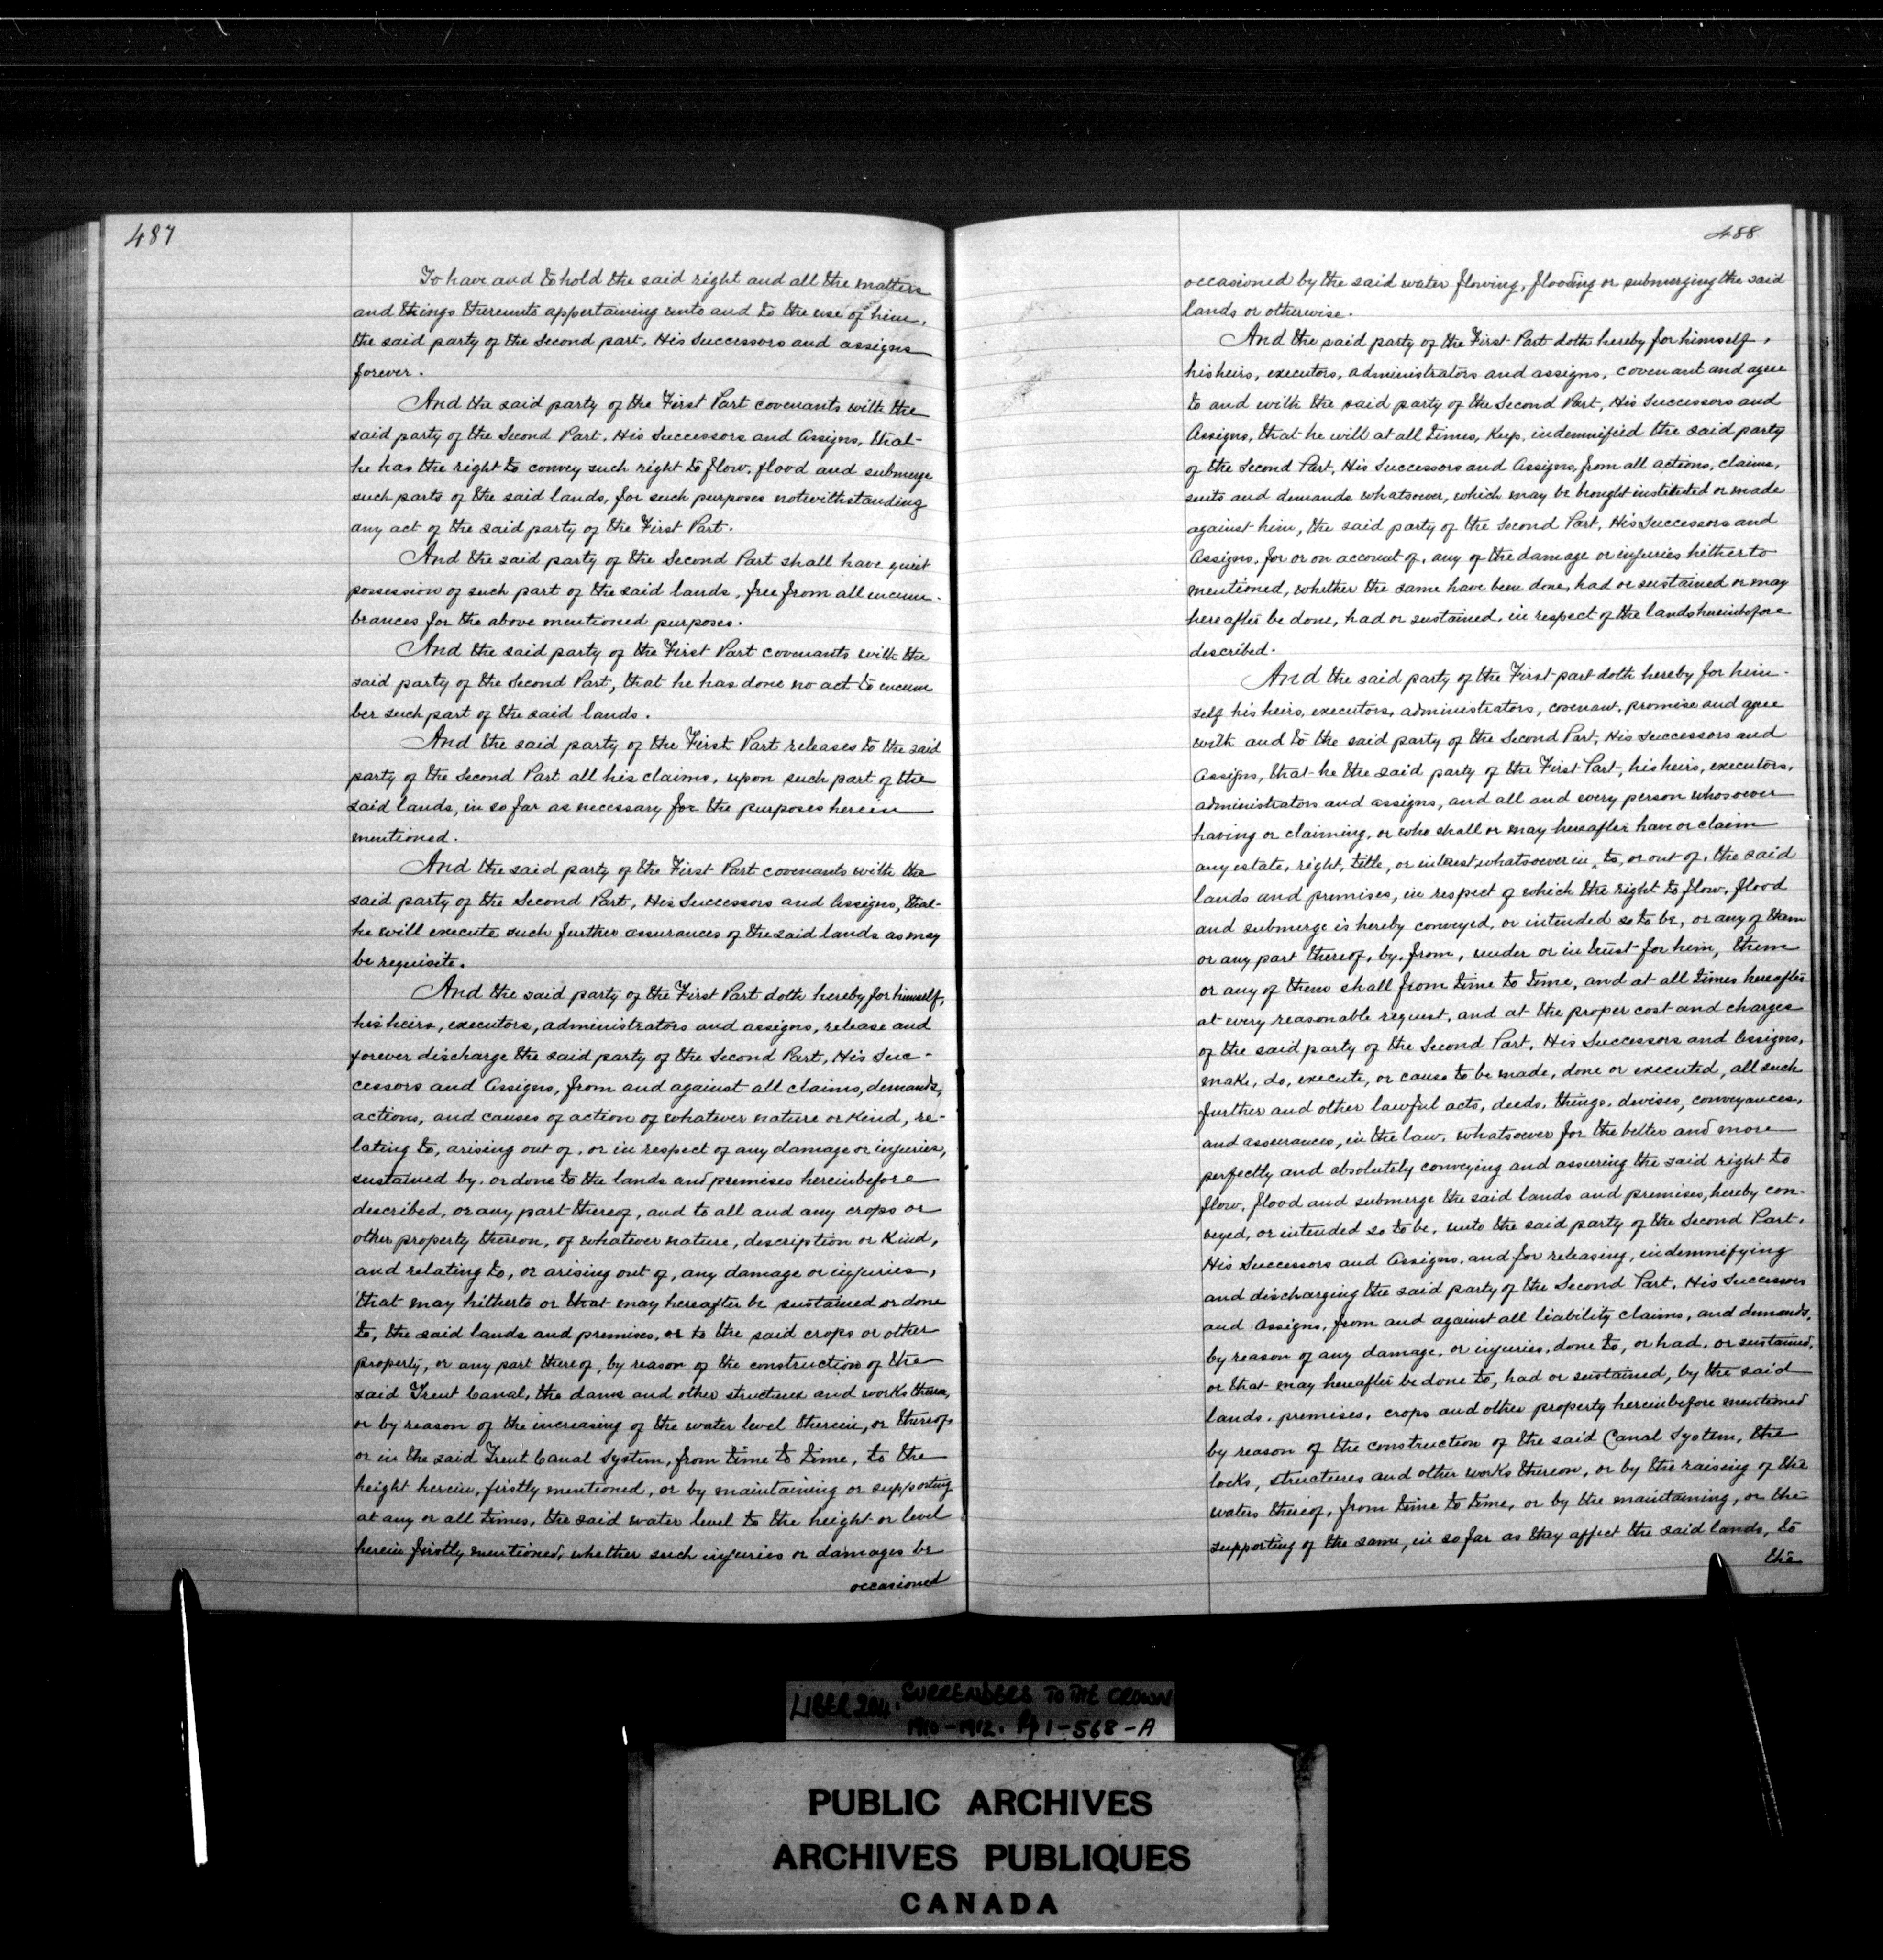 487
To have and to hold the said right and all the matters
and things thereunto appertaining unto and to the use of him,
the said party of the Second part, His Successors and assigns
forever.
And the said party of the First Part covenants with the
said party of the Second Part, His Successors and Assigns, that
he has the right to convey such right to flow, flood and submerge
such parts of the said lands, for such purposes notwithstanding
any act of the said party of the First Part.
And the said party of the Second Part shall have quiet
possession of such part of the said lands, free from all incum-
brances for the above mentioned purposes.
And the said party of the First Part covenants with the
said party of the Second Part, that he has done no act to incum
ber such part of the said lands.
And the said party of the First Part releases to the said
party of the Second Part all his claims, upon such part of the
said lands, in so far as necessary for the purposes herein
mentioned.
And the said party of the First Part covenants with the
said party of the Second Part, His Successors and Assigns, that
he will execute such further assurances of the said lands as may
be requisite.
And the said party of the First Part doth hereby for himself,
his heirs, executors, administrators and assigns, release and
forever discharge the said party of the Second Part, His Suc-
cessors and Assigns, from and against all claims, demands,
actions, and causes of action of whatever nature or kind, re-
lating to, arising out of, or in respect of any damage or injuries,
sustained by, or done to the lands and premises hereinbefore
described, or any part thereof, and to all and any crops or
other property thereon, of whatever nature, description or kind,
and relating to, or arising out of, any damage or injuries,
that may hitherto or that may hereafter be sustained or done
to, the said lands and premises, or to the said crops or other
property, or any part thereof, by reason of the construction of the
said Trent Canal, the dams and other structures and works thereon,
or by reason of the increasing of the water level therein, or thereof
or in the said Trent Canal System, from time to time, to the
height herein, firstly mentioned, or by maintaining or supporting
at any or all times, the said water level to the height or level
herein firstly mentioned, whether such injuries or damages be
occasioned
488
occasioned by the said water flowing, flooding or submerging the said
lands or otherwise.
And the said party of the First Part doth hereby for himself,
his heirs, executors, administrators and assigns, covenant and agree
to and with the said party of the Second Part, His Successors and
Assigns, that he will at all times, keep, indemnified the said party
of the Second Part, His Successors and Assigns, from all actions, claims,
suits and demands whatsoever, which may be brought instituted or made
against him, the said party of the Second Part, His Successors and
Assigns, for or on account of, any of the damage or injuries hitherto
mentioned, whether the same have been done, had or sustained or may
hereafter be done, had or sustained, in respect of the lands hereinbefore
described.
And the said party of the First part doth hereby for him-
self his heirs, executors, administrators, covenant, promise and agree
with and to the said party of the Second Part, His Successors and
Assigns, that he the said party of the First Part, his heirs, executors,
administrators and assigns, and all and every person whosoever
having or claiming, or who shall or may hereafter have or claim
any estate, right, title, or interest, whatsoever in, to, or out of, the said
lands and premises, in respect of which the right to flow, flood
and submerge is hereby conveyed, or intended so to be, or any of them
or any part thereof, by, from, under or in trust for him, them
or any of them shall from time to time, and at all times hereafter
at every reasonable request, and at the proper cost and charges
of the said party of the Second Part, His Successors and Assigns,
make, do, execute, or cause to be made, done or executed, all such
further and other lawful acts, deeds, things, devises, conveyances,
and assurances, in the law, whatsoever for the better and more
perfectly and absolutely conveying and assuring the said right to
flow, flood and submerge the said lands and premises, hereby con-
veyed, or intended so to be, unto the said party of the Second Part,
His Successors and Assigns, and for releasing, indemnifying
and discharging the said party of the Second Part, His Successors
and Assigns, from and against all liability claims, and demands,
by reason of any damage, or injuries, done to, or had, or sustained,
or that may hereafter be done to, had or sustained, by the said
lands, premises, crops and other property hereinbefore mentioned
by reason of the construction of the said Canal System, the
locks, structures and other works thereon, or by the raising of the
waters thereof, from time to time, or by the maintaining, or the
supporting of the same, in so far as they affect the said lands, to
the
LIBER 204. SURRENDERS TO THE CROWN
1910-1912. Pp 1-568-A
PUBLIC ARCHIVES
ARCHIVES PUBLIQUES
CANADA